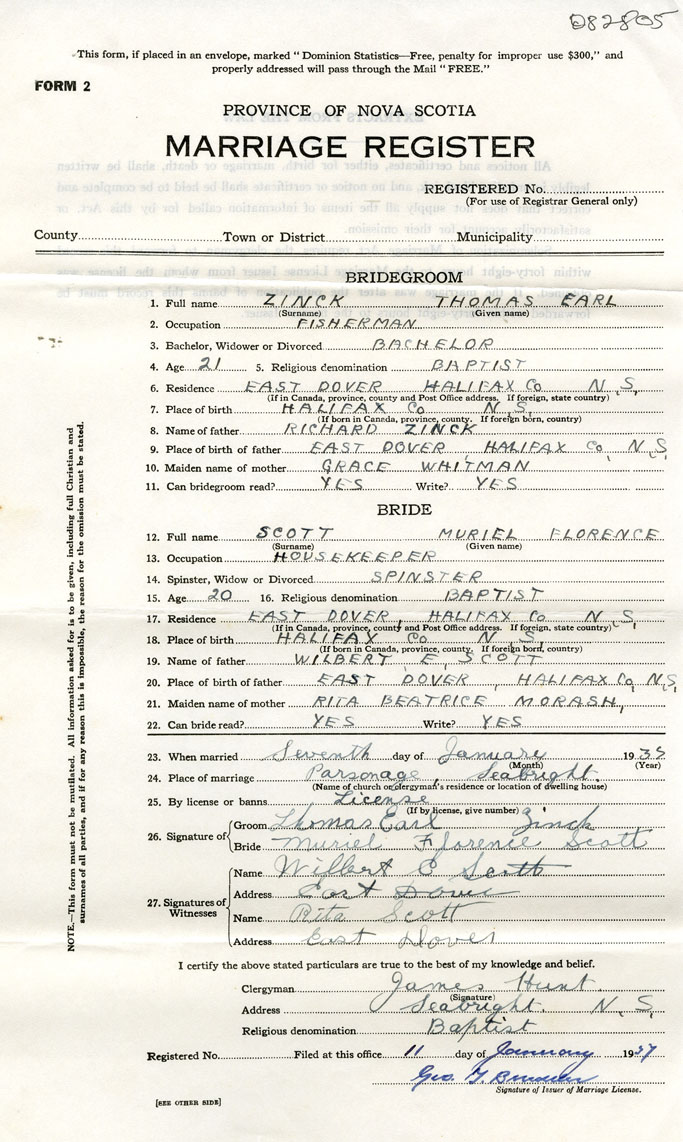 D82805
This form, if placed in an envelope, marked "Dominion Statistics—Free, penalty for improper use $300," and
properly addressed will pass through the Mail "FREE."
FORM 2
PROVINCE OF NOVA SCOTIA
MARRIAGE REGISTER
REGISTERED No.
(For use of Registrar General only)
County Town or District Municipality
BRIDEGROOM
1. Full name ZINCK THOMAS EARL
(Surname) (Given name)
2. Occupation FISHERMAN
3. Bachelor, Widower or Divorced BACHELOR
4. Age 21 5. Religious denomination BAPTIST
6. Residence EAST DOVER HALIFAX Co N.S.
(If in Canada, province, county and Post Office address. If foreign, state country)
7. Place of birth HALIFAX Co N.S.
(If born in Canada, province, county. If foreign born, country)
8. Name of father RICHARD ZINCK
9. Place of birth of father EAST DOVER, HALIFAX Co, N.S.
10. Maiden name of mother GRACE WHITMAN
11. Can bridegroom read? YES Write? YES
BRIDE
12. Full name SCOTT MURIEL FLORENCE
(Surname) (Given name)
13. Occupation HOUSEKEEPER
14. Spinster, Widow or Divorced SPINSTER
15. Age 20 16. Religious denomination BAPTIST
17. Residence EAST DOVER, HALIFAX Co N.S.
(If in Canada, province, county and Post Office address. If foreign, state country)
18. Place of birth HALIFAX Co N.S.
(If born in Canada, province, county. If foreign born, country)
19. Name of father WILBERT E, SCOTT
20. Place of birth of father EAST DOVER, HALIFAX Co, N.S.
21. Maiden name of mother RITA BEATRICE MORASH,
22. Can bride read? YES Write? YES
23. When married Seventh day of January 19
(Month) (Year)
24. Place of marriage Parsonage, Seabright.
(Name of church or clergyman's residence or location of dwelling house)
25. By license or banns License
(If by license, give number)
26. Signature of Groom Thomas Earl Zinck
Bride Muriel Florence Scott
27. Signatures of Witnesses
Name Wilbert E Scott
Address East Dover
Name Rita Scott
Address East Dover
I certify the above stated particulars are true to the best of my knowledge and belief.
Clergyman James Hunt
(Signature)
Address Seabright. N.S.
Religious denomination Baptist
Registered No. Filed at this office 11 day of January 1937
Geo.
Signature of Issuer of Marriage License.
[SEE OTHER SIDE]
NOTE.—This form must not be mutilated. All information asked for is to be given, including full Christian and
surnames of all parties, and if for any reason this is impossible, the reason for the omission must be stated.